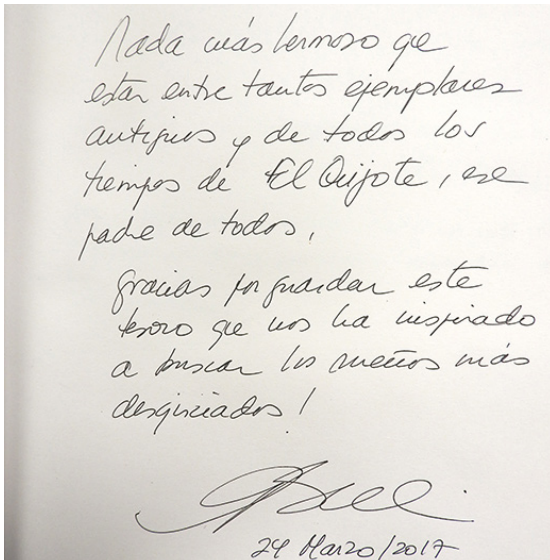 Nada más hermoso qe
estar entre tantos ejemplares
antiguos y de todos los
tiempos de El Quijote, ese
padre de todos.
Gracias por guardar este
tesoro qe nos ha inspirado
a buscar los sueños más
desquiciados!
24 Marzo/2017